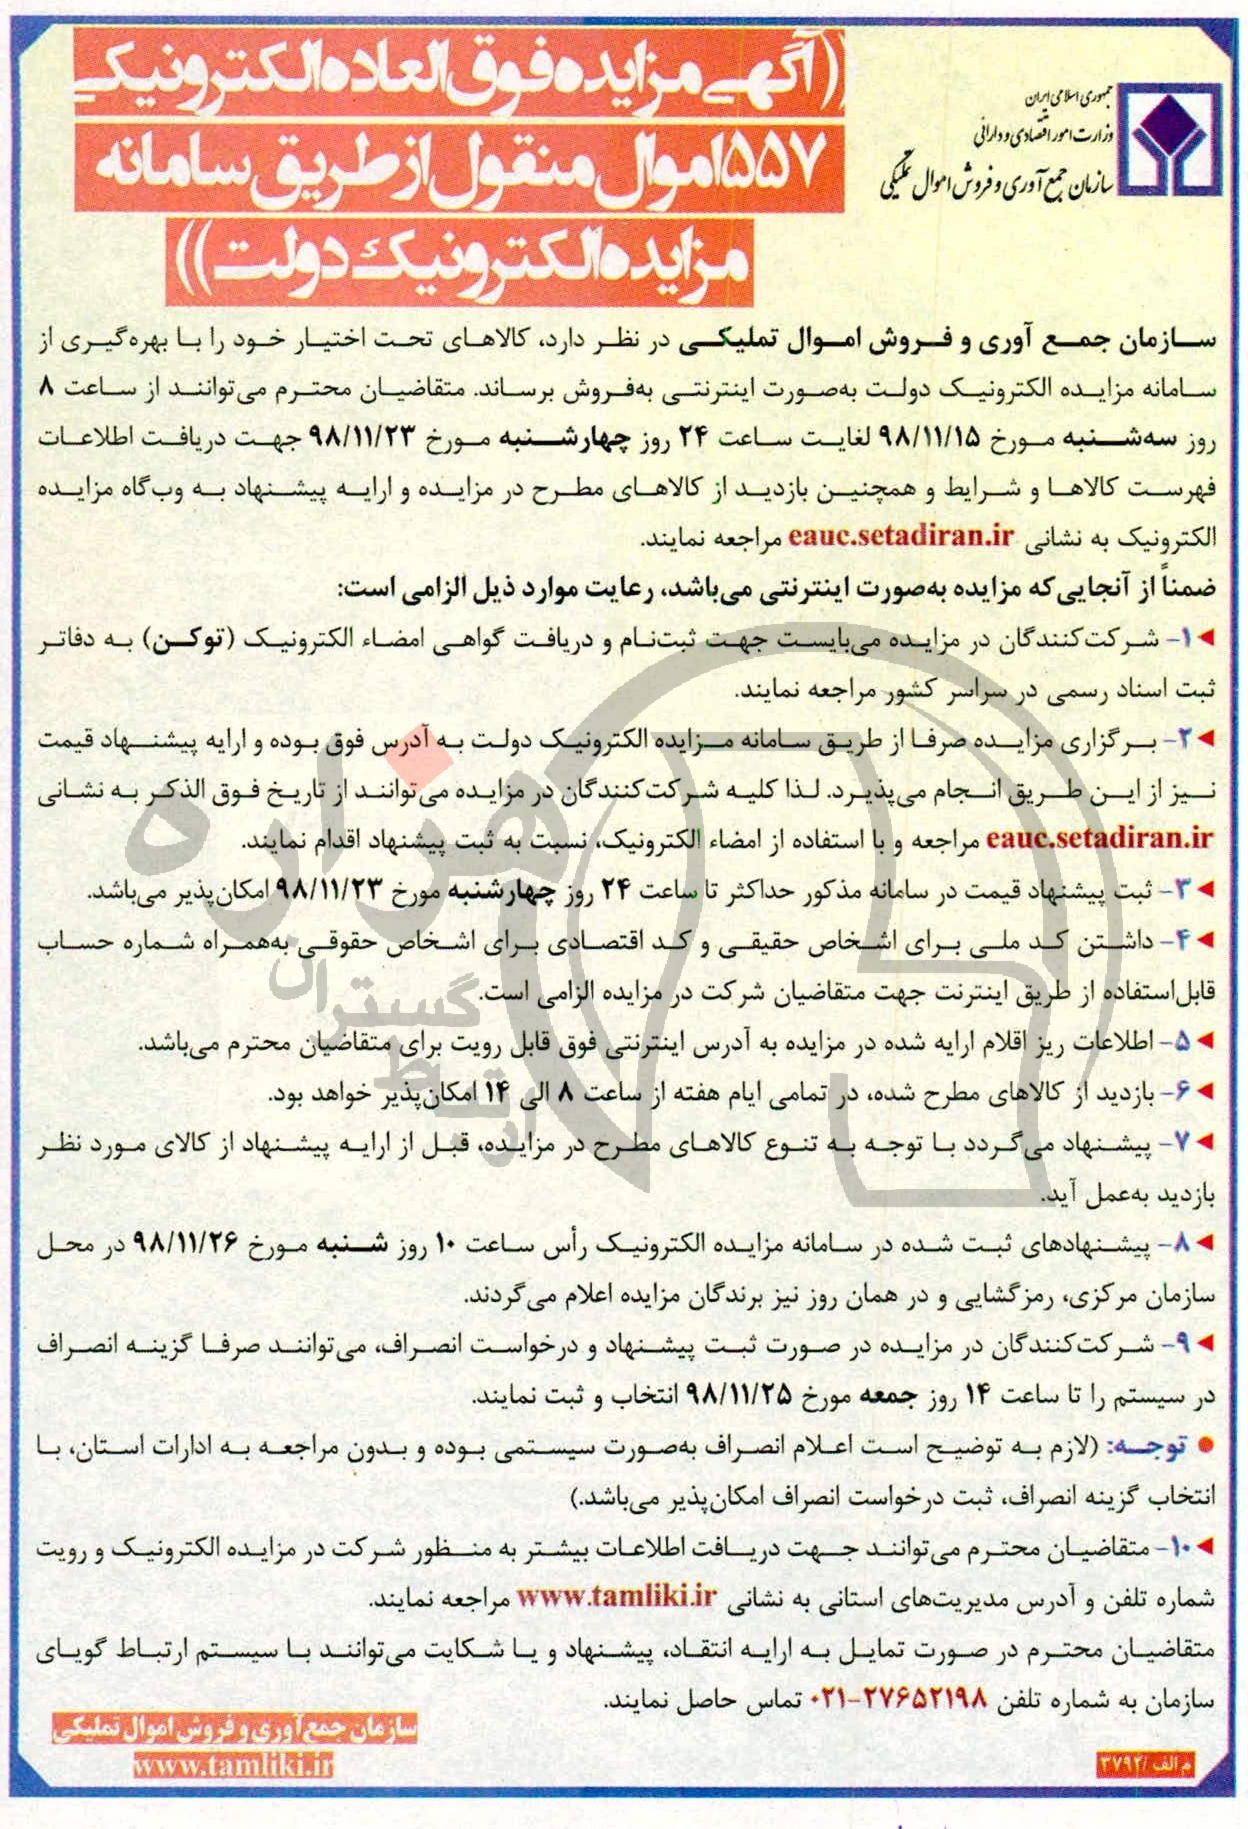 جمهوری اسلامی ایران
وزارت امور اقتصادی و دارائی
سازمان جمع آوری و فروش اموال تملیکی
((آگهی مزایده فوق العاده الکترونیکی
۵۵۷ اموال منقول از طریق سامانه
مزایده الکترونیک دولت))
سازمان جمع آوری و فروش اموال تملیکی در نظر دارد، کالاهای تحت اختیار خود را با بهره‌گیری از
سامانه مزایده الکترونیک دولت به‌صورت اینترنتی به‌فروش برساند. متقاضیان محترم می‌توانند از ساعت ۸
روز سه‌شنبه مورخ ۹۸/۱۱/۱۵ لغایت ساعت ۲۴ روز چهارشنبه مورخ ۹۸/۱۱/۲۳ جهت دریافت اطلاعات
فهرست کالاها و شرایط و همچنین بازدید از کالاهای مطرح در مزایده و ارایه پیشنهاد به وب‌گاه مزایده
الکترونیک به نشانی eauc.setadiran.ir مراجعه نمایند.
ضمناً از آنجایی‌که مزایده به‌صورت اینترنتی می‌باشد، رعایت موارد ذیل الزامی است:
◄۱- شرکت‌کنندگان در مزایده می‌بایست جهت ثبت‌نام و دریافت گواهی امضاء الکترونیک (توکن) به دفاتر
ثبت اسناد رسمی در سراسر کشور مراجعه نمایند.
◄۲- برگزاری مزایده صرفا از طریق سامانه مزایده الکترونیک دولت به آدرس فوق بوده و ارایه پیشنهاد قیمت
نیز از این طریق انجام می‌پذیرد. لذا کلیه شرکت‌کنندگان در مزایده می‌توانند از تاریخ فوق الذکر به نشانی
eauc.setadiran.ir مراجعه و با استفاده از امضاء الکترونیک، نسبت به ثبت پیشنهاد اقدام نمایند.
◄۳- ثبت پیشنهاد قیمت در سامانه مذکور حداکثر تا ساعت ۲۴ روز چهارشنبه مورخ ۹۸/۱۱/۲۳ امکان‌پذیر می‌باشد.
◄۴- داشتن کد ملی برای اشخاص حقیقی و کد اقتصادی برای اشخاص حقوقی به‌همراه شماره حساب
قابل‌استفاده از طریق اینترنت جهت متقاضیان شرکت در مزایده الزامی است.
◄۵- اطلاعات ریز اقلام ارایه شده در مزایده به آدرس اینترنتی فوق قابل رویت برای متقاضیان محترم می‌باشد.
◄۶- بازدید از کالاهای مطرح شده، در تمامی ایام هفته از ساعت ۸ الی ۱۴ امکان‌پذیر خواهد بود.
◄۷- پیشنهاد می‌گردد با توجه به تنوع کالاهای مطرح در مزایده، قبل از ارایه پیشنهاد از کالای مورد نظر
بازدید به‌عمل آید.
◄۸- پیشنهادهای ثبت شده در سامانه مزایده الکترونیک رأس ساعت ۱۰ روز شنبه مورخ ۹۸/۱۱/۲۶ در محل
سازمان مرکزی، رمزگشایی و در همان روز نیز برندگان مزایده اعلام می‌گردند.
◄۹- شرکت‌کنندگان در مزایده در صورت ثبت پیشنهاد و درخواست انصراف، می‌توانند صرفا گزینه انصراف
در سیستم را تا ساعت ۱۴ روز جمعه مورخ ۹۸/۱۱/۲۵ انتخاب و ثبت نمایند.
● توجه: (لازم به توضیح است اعلام انصراف به‌صورت سیستمی بوده و بدون مراجعه به ادارات استان، با
انتخاب گزینه انصراف، ثبت درخواست انصراف امکان‌پذیر می‌باشد.)
◄۱۰- متقاضیان محترم می‌توانند جهت دریافت اطلاعات بیشتر به منظور شرکت در مزایده الکترونیک و رویت
شماره تلفن و آدرس مدیریت‌های استانی به نشانی www.tamliki.ir مراجعه نمایند.
متقاضیان محترم در صورت تمایل به ارایه انتقاد، پیشنهاد و یا شکایت می‌توانند با سیستم ارتباط گویای
سازمان به شماره تلفن ۲۷۶۵۲۱۹۸-۰۲۱ تماس حاصل نمایند.
سازمان جمع‌آوری و فروش اموال تملیکی
www.tamliki.ir
م الف /۳۷۹۴
هزاره
گستران
ارتباط